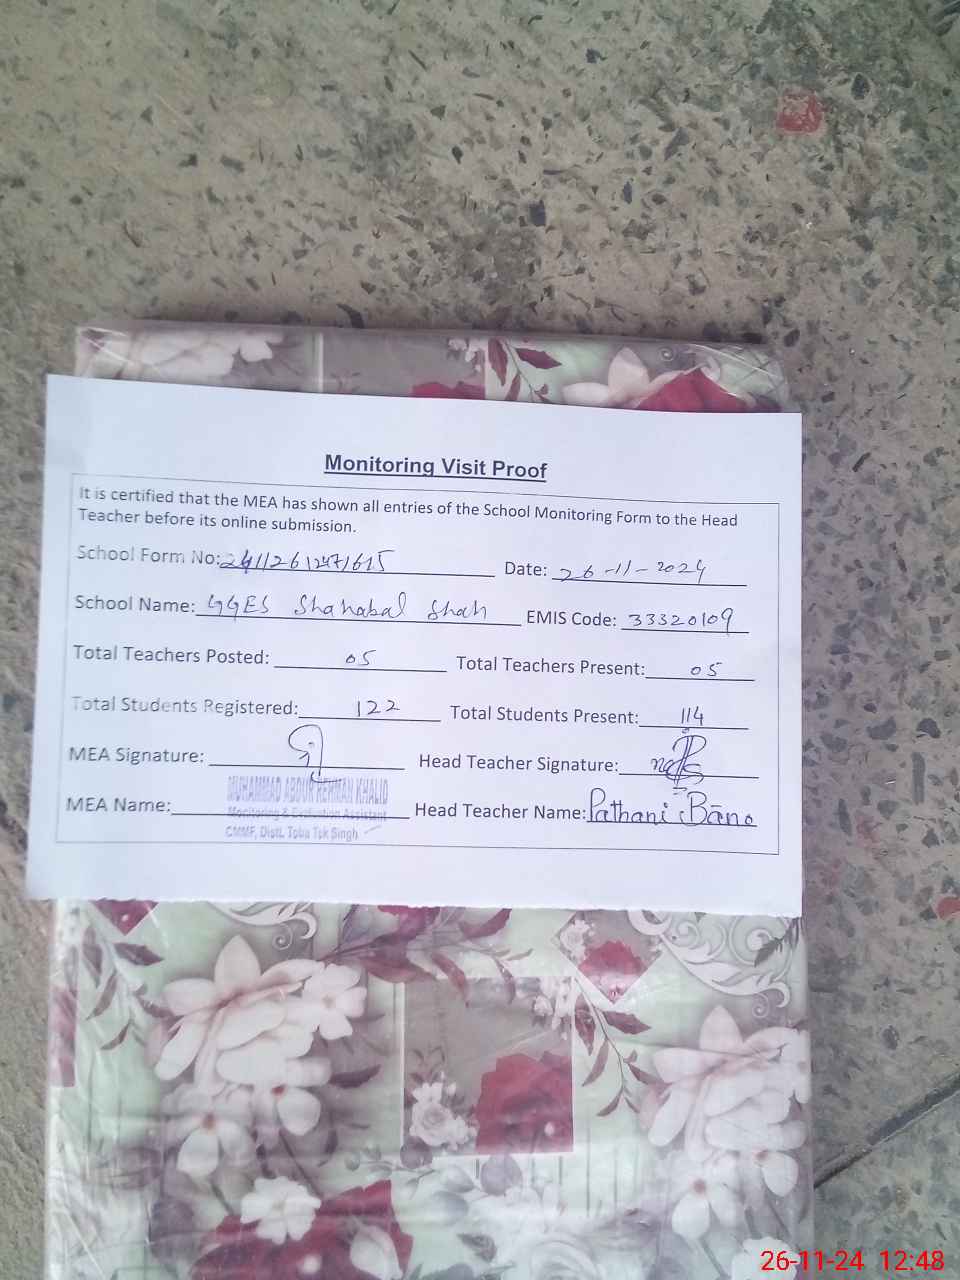 Monitoring Visit Proof
It is certified that the MEA has shown all entries of the School Monitoring Form to the Head
Teacher before its online submission.
School Form No: Date: 26-11-2024
School Name: GGES Shahabal Shah EMIS Code: 33320109
Total Teachers Posted: 05 Total Teachers Present: 05
Total Students Registered: 122 Total Students Present: 114
MEA Signature: Head Teacher Signature:
MUHAMMAD ABDUR REHMAN KHALID
MEA Name: Head Teacher Name: Pathani Bano
Monitoring & Evaluation Assistant
CMMF, Distt. Toba Tek Singh
26-11-24 12:48